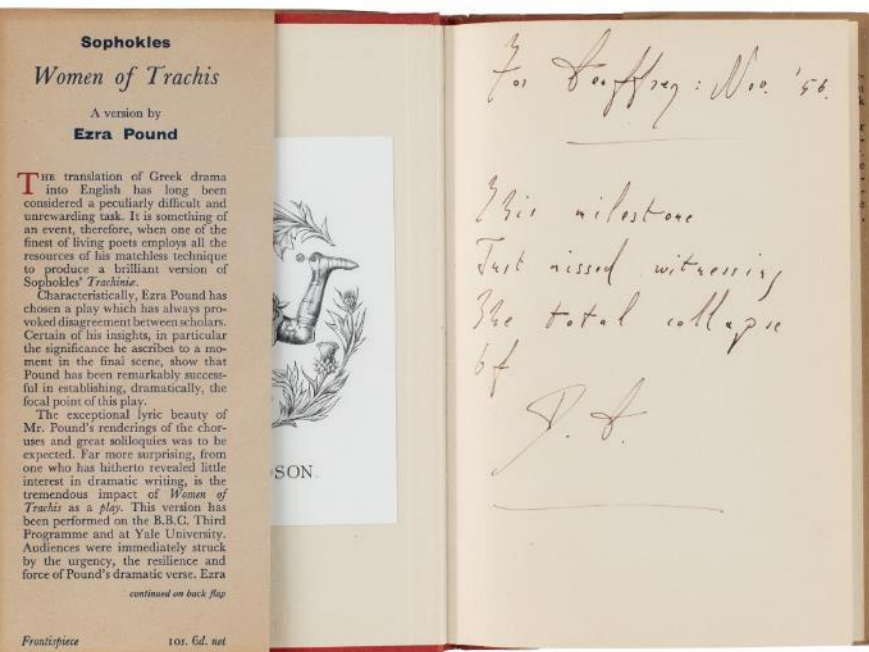 Sophokles
Women of Trachis
A version by
Ezra Pound
THE translation of Greek drama
into English has long been
considered a peculiarly difficult and
unrewarding task. It is something of
an event, therefore, when one of the
finest of living poets employs all the
resources of his matchless technique
to produce a brilliant version of
Sophokles' Trachiniæ.
Characteristically, Ezra Pound has
chosen a play which has always pro-
voked disagreement between scholars.
Certain of his insights, in particular
the significance he ascribes to a mo-
ment in the final scene, show that
Pound has been remarkably success-
ful in establishing, dramatically, the
focal point of this play.
The exceptional lyric beauty of
Mr. Pound's renderings of the chor-
uses and great soliloquies was to be
expected. Far more surprising, from
one who has hitherto revealed little
interest in dramatic writing, is the
tremendous impact of Women of
Trachis as a play. This version has
been performed on the B.B.C. Third
Programme and at Yale University.
Audiences were immediately struck
by the urgency, the resilience and
force of Pound's dramatic verse. Ezra
continued on back flap
Frontispiece 10s. 6d. net
SON.
For Geoffrey: Nov. '56.
This milestone
Just missed witnessing
The total collapse
Of